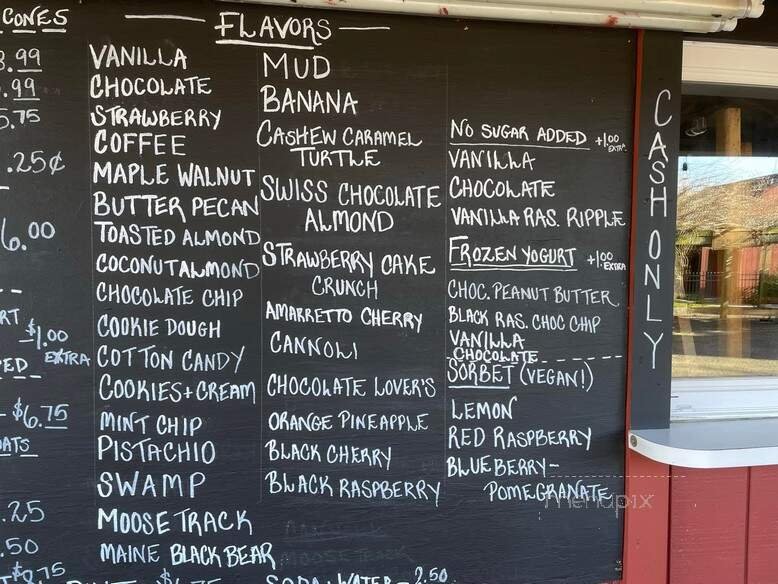 CONES
.99
.99
5.75
.25¢
6.00
$1.00
EXTRA
$6.75
.25
.50
$8.75
FLAVORS
VANILLA
CHOCOLATE
STRAWBERRY
COFFEE
MAPLE WALNUT
BUTTER PECAN
TOASTED ALMOND
COCONUT ALMOND
CHOCOLATE CHIP
COOKIE DOUGH
COTTON CANDY
COOKIES+CREAM
MINT CHIP
PISTACHIO
SWAMP
MOOSE TRACK
MAINE BLACK BEAR
MUD
BANANA
CASHEW CARAMEL
TURTLE
SWISS CHOCOLATE
ALMOND
STRAWBERRY CAKE
CRUNCH
AMARRETTO CHERRY
CANNOLI
CHOCOLATE LOVER'S
ORANGE PINEAPPLE
BLACK CHERRY
BLACK RASPBERRY
MOOSE TRACK
SODA WATER - 2.50
NO SUGAR ADDED +1.00 EXTRA
VANILLA
CHOCOLATE
VANILLA RAS. RIPPLE
FROZEN YOGURT +1.00 EXTRA
CHOC. PEANUT BUTTER
BLACK RAS. CHOC CHIP
VANILLA
CHOCOLATE
SORBET (VEGAN!)
LEMON
RED RASPBERRY
BLUEBERRY-
POMEGRANATE
CASH ONLY
menupix